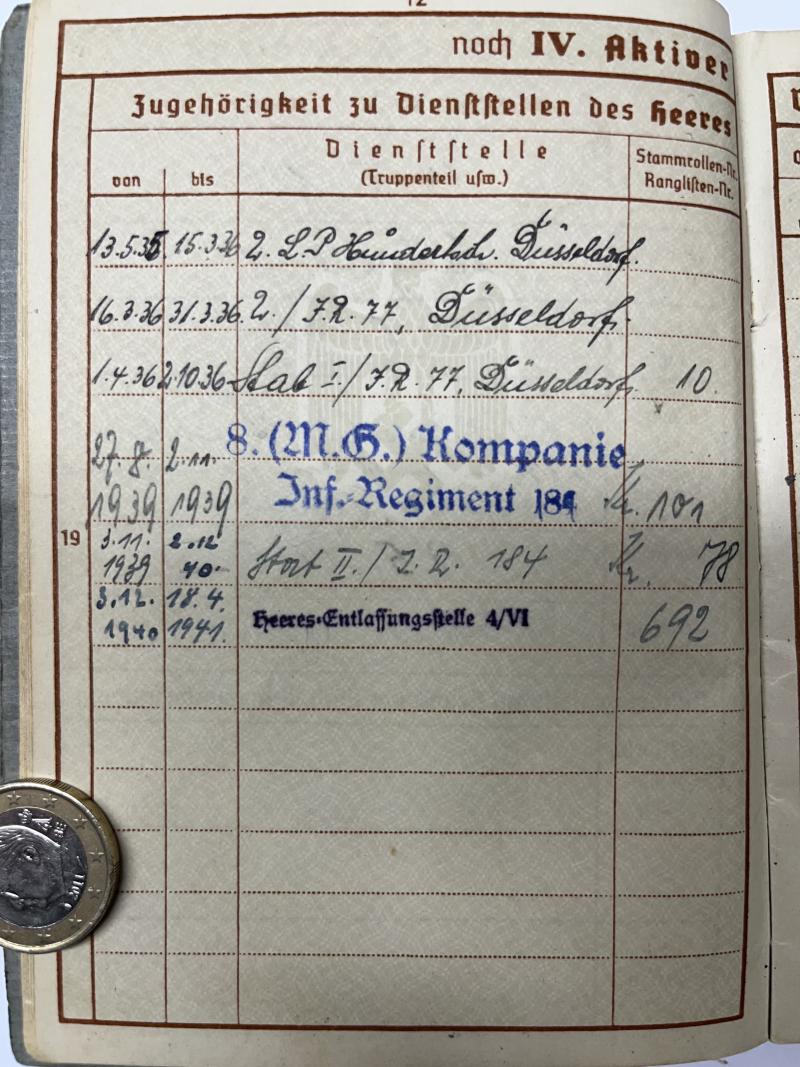 12
noch IV. Aktiver
Zugehörigkeit zu Dienststellen des Heeres
von bis Dienststelle (Truppenteil usw.) Stammrollen-Nr. Ranglisten-Nr.
13.5.35 15.3.36 2. L.P. Hundertsch. Düsseldorf.
16.3.36 31.3.36. 2./J.R. 77, Düsseldorf.
1.4.36 2.10.36 Stab I/J.R. 77, Düsseldorf. 10.
27.8. 2.11. 8. (M.G.) Kompanie
1939 1939 Inf.-Regiment 184 Kr. 101
19
3.11. 2.12
1939 40. Stab II./J.R. 184 Kr. 78
3.12. 18.4.
1940 1941. Heeres-Entlassungsstelle 4/VI 692
2011